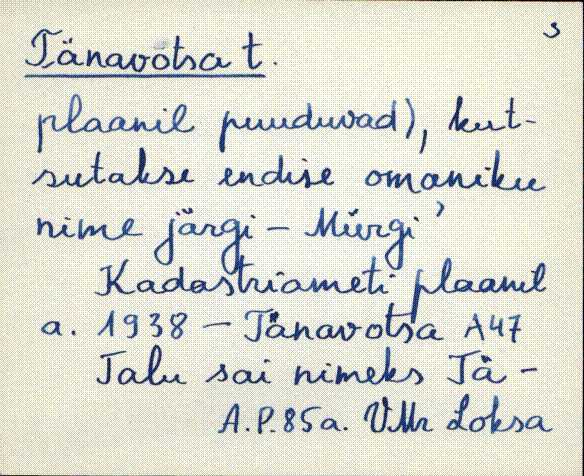 3
Tänavotsa t.
plaanil puuduvad), kut-
sutakse endise omaniku
nime järgi – Mürgi'
Kadastriameti plaanil
a. 1938 – Tänavotsa A47
Talu sai nimeks Tä-
A.P. 85a. VMr Loksa